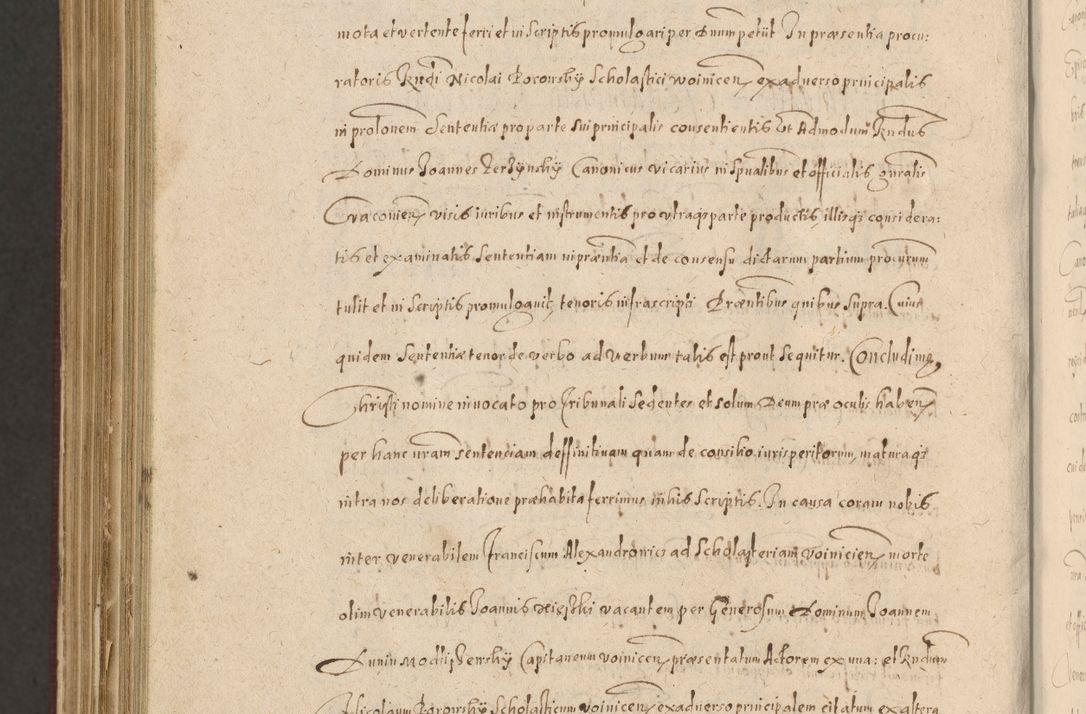 mota et vertente ferri et in scriptis promulgari per Dnum petüt In præsentia procu:
ratoris Rndi Nicolai Borowsky Scholastici Woinicen, ex adverso principalis
in prolonem Sententiæ pro parte sui principalis consentientis Et Admodum Rndus
Dominus Joannes Canonicus vicarius in Spualibus et officialis gnralis
Cracovien, visis iuribus et instrumentis pro utraqs parte productis, illisqs considera:
tis et examinatis Sententiam in præntia et de consensu dictarum partium procurum
tulit et in Scriptis promulgavit, tenoris infrascripti Præntibus quibus supra. Cuius
quidem Sententiæ tenor de verbo ad verbum talis est prout sequitur. Concludimus,
Christi nomine invocato pro Tribunali Sedentes et solum Deum præ oculis haben,
per hanc nram sententiam deffinitivam quam de consilio iurisperitorum, maturaqs
intra nos deliberatione præhabita ferrimus in his Scriptis. In causa coram nobis
inter venerabilem Franciscum Alexandrowicz ad Scholasteriam Woinicien, morte
olim venerabilis Joannis vacantem per Generosum Dominum Joannem
Dunin Capitaneum Woinicen, præsentatum Actorem ex una: et Rndum
Nicolaum Borowsky Scholasticum Woinicen, ex adverso principalem citatum ex altera